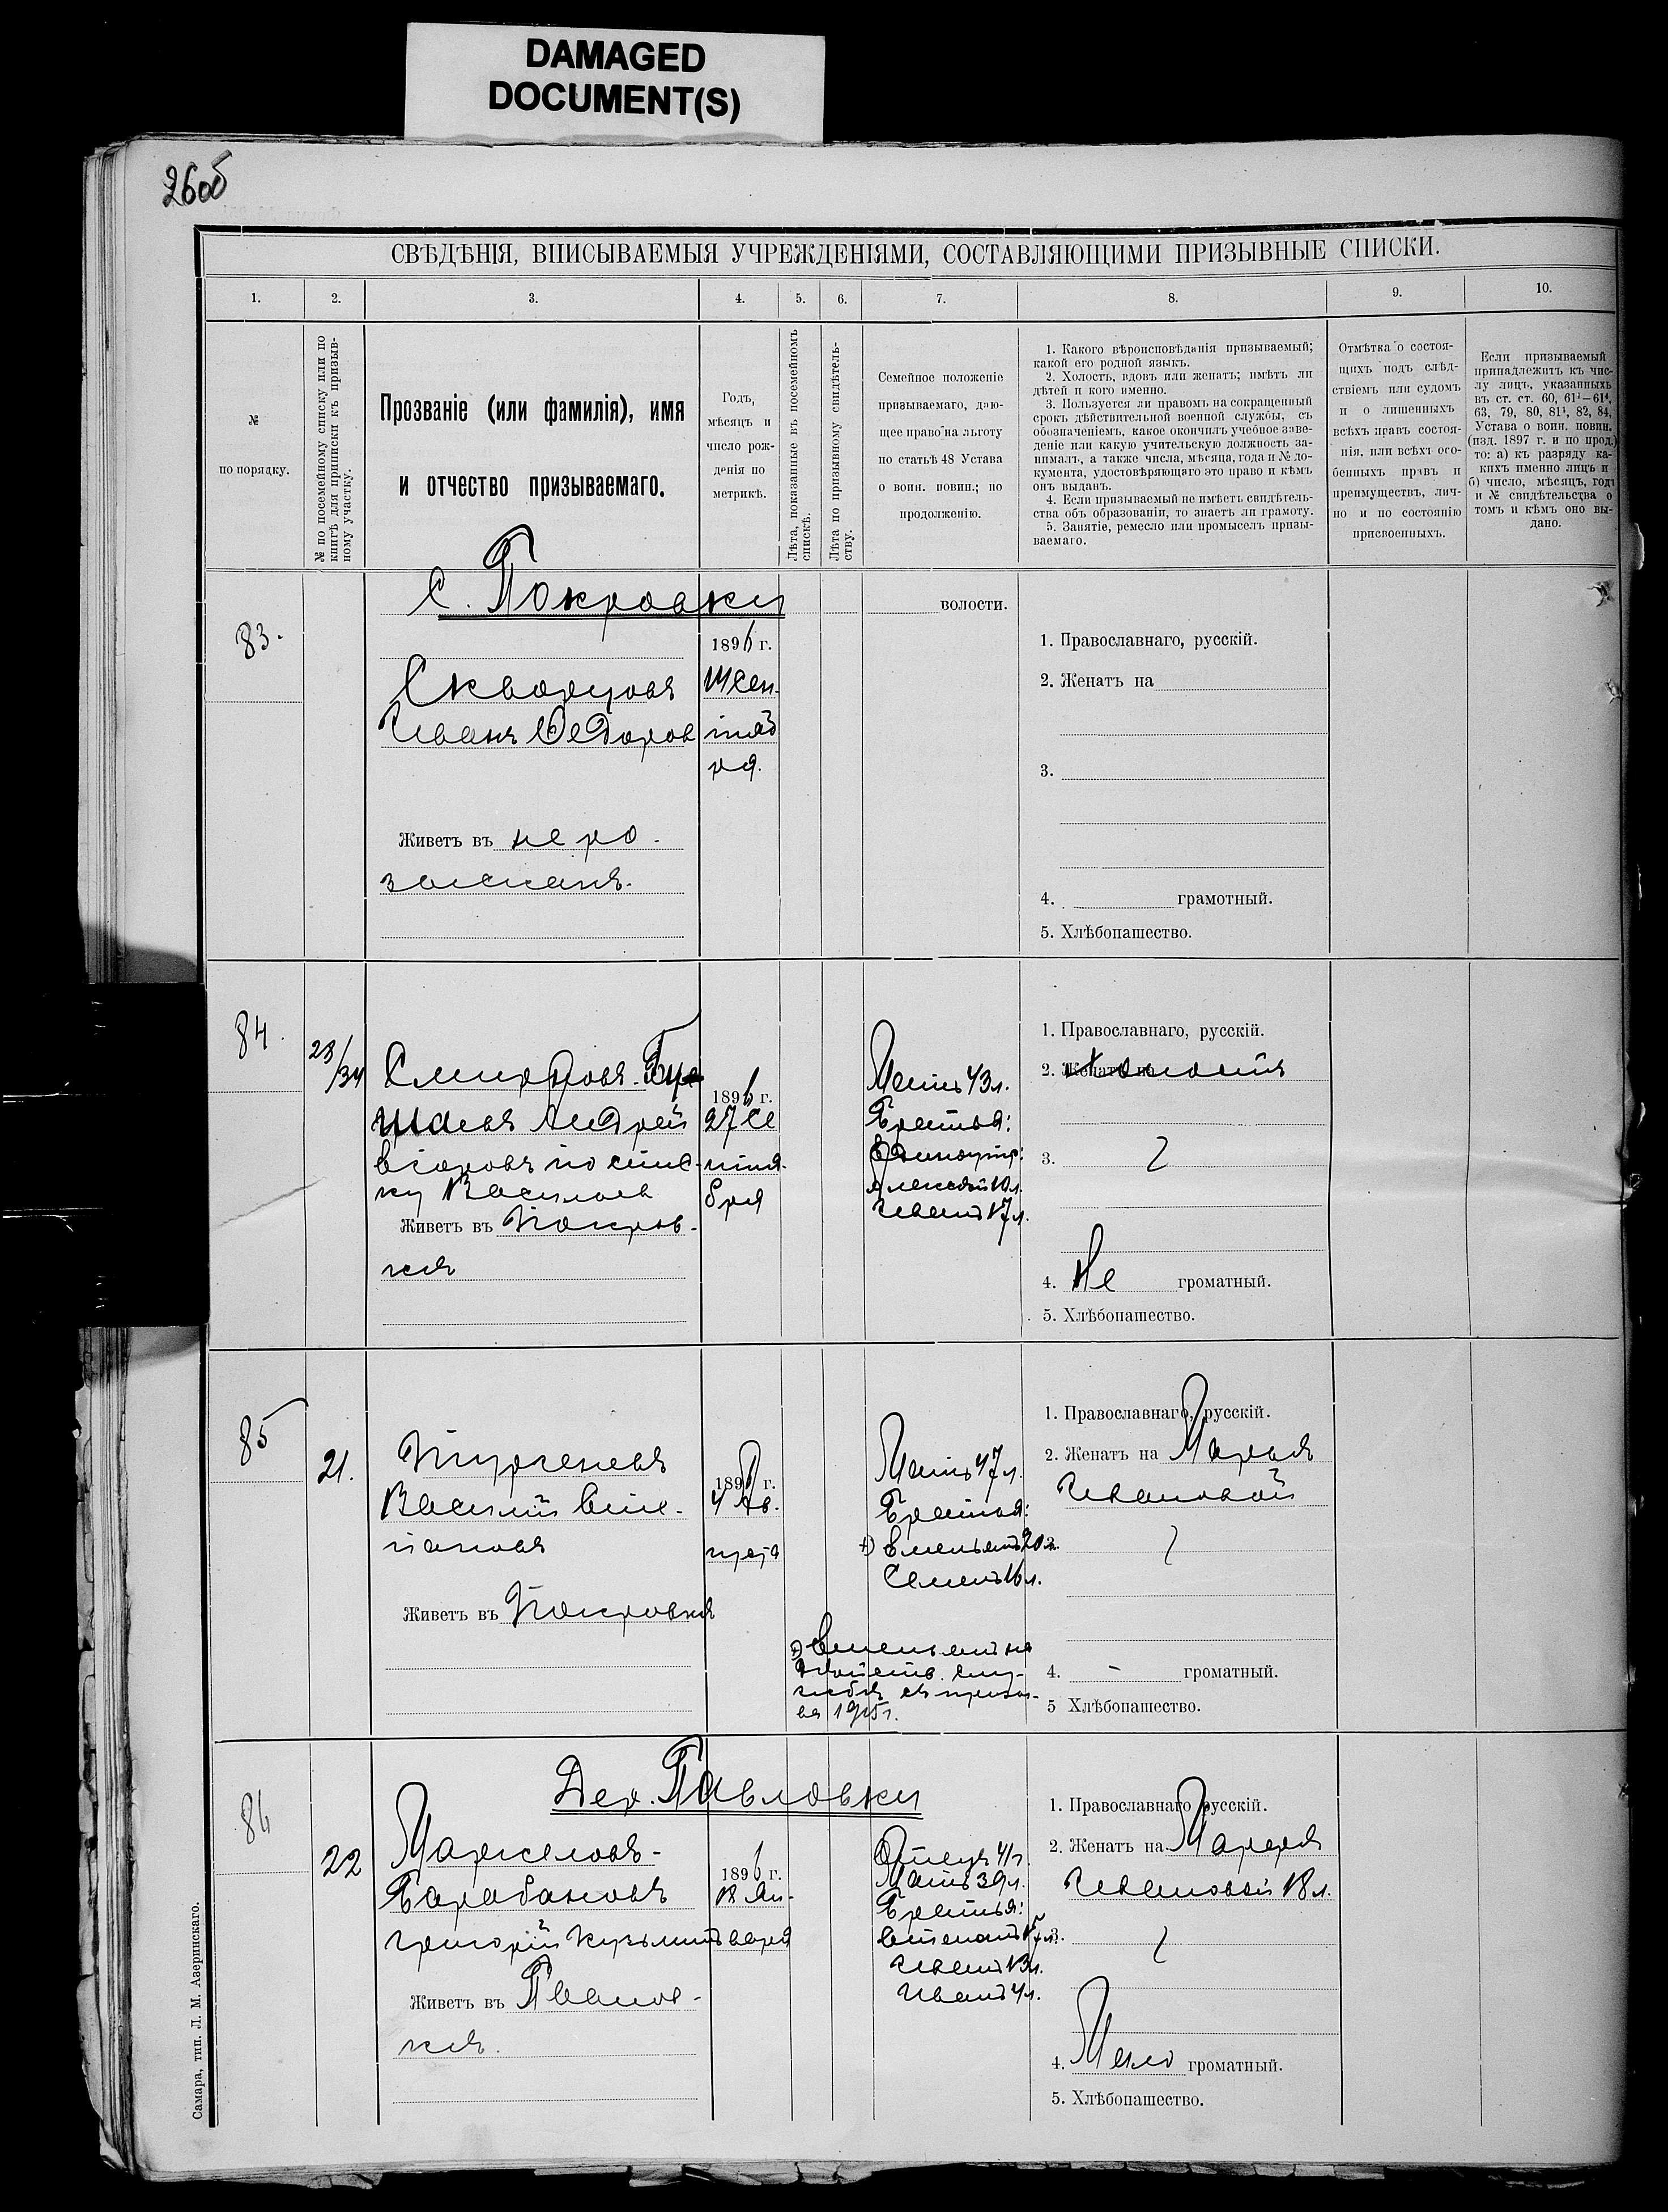 DAMAGED
DOCUMENT(S)
26об
СВѢДѢНІЯ, ВПИСЫВАЕМЫЯ УЧРЕЖДЕНІЯМИ, СОСТАВЛЯЮЩИМИ ПРИЗЫВНЫЕ СПИСКИ.
1. 2. 3. 4. 5. 6. 7. 8. 9. 10.
№
по порядку.
№ по посемейному списку или по
книгѣ для приписки къ призыв-
ному участку.
Прозваніе (или фамилія), имя
и отчество призываемаго.
Годъ,
мѣсяцъ и
число рож-
денія по
метрикѣ.
Лѣта, показанные въ посемейномъ
спискѣ.
Лѣта по призывному свидѣтель-
ству.
Семейное положеніе
призываемаго, даю-
щее право на льготу
по статьѣ 48 Устава
о воин. повин.; по
продолженію.
1. Какого вѣроисповѣданія призываемый;
какой его родной языкъ.
2. Холостъ, вдовъ или женатъ; имѣтъ ли
дѣтей и кого именно.
3. Пользуется ли правомъ на сокращенный
срокъ дѣйствительной военной службы, съ
обозначеніемъ, какое окончилъ учебное заве-
деніе или какую учительскую должность за-
нималъ, а также числа, мѣсяца, года и № до-
кумента, удостовѣряющаго это право и кѣмъ
онъ выданъ.
4. Если призываемый не имѣетъ свидѣтель-
ства объ образованіи, то знаетъ ли грамоту.
5. Занятіе, ремесло или промыселъ призы-
ваемаго.
Отмѣтка о состоя-
щихъ подъ слѣд-
ствіемъ или судомъ
и о лишенныхъ
всѣхъ правъ состоя-
нія, или всѣхъ осо-
бенныхъ правъ и
преимуществъ, лич-
но и по состоянію
присвоенныхъ.
Если призываемый
принадлежитъ къ чис-
лу лицъ, указанныхъ
въ ст. ст. 60, 61¹—61⁴,
63, 79, 80, 81¹, 82, 84,
Устава о воин. повин.
(изд. 1897 г. и по прод.)
то: а) къ разряду ка-
кихъ именно лицъ и
б) число, мѣсяцъ, годъ
и № свидѣтельства о
томъ и кѣмъ оно вы-
дано.
С. Покровки
волости.
83.
1896 г.
Скворцовъ
Иванъ Ѳедоров
14 Сен-
тяб
ря.
Живетъ въ не ро-
зысканъ.
1. Православнаго, русскій.
2. Женатъ на
3.
4. грамотный.
5. Хлѣбопашество.
84.
23/34
Смирновъ
Андрей
Васильев
1896 г.
27 Се
нтя-
бря
Живетъ въ Покров-
кѣ
Мать 43 л.
Братья:
Единоутр:
Алексѣй 10 л.
Иванъ 17 л.
1. Православнаго, русскій.
2. Женатъ на Холостъ
3.
4. Не громатный.
5. Хлѣбопашество.
85
21.
Тургеневъ
Василій Сте-
пановъ
189 г.
4 Ав-
густа
Живетъ въ Покровкѣ
Мать 47 л.
Братья:
Емельянъ 20 л.
Семенъ 16 л.
Емельянъ на
дѣйств. слу-
жбѣ съ призы-
ва 1915 г.
1. Православнаго, русскій.
2. Женатъ на Марьѣ
Ивановой
3.
4. - громатный.
5 Хлѣбопашество.
Дер. Павловки
86
22
Маркеловъ-
Барабановъ
Григорій Кузьминъ
1896 г.
18 Ян-
варя
Живетъ въ Павлов-
кѣ.
Отецъ 41 г.
Мать 39 л.
Братья:
Степанъ 15 л.
Иванъ 13 л.
Иванъ 4 л.
1. Православнаго русскій.
2. Женатъ на Марьѣ
Ивановой 18 л.
3.
4. Мало громатный.
5. Хлѣбопашество.
Самара, тип. Л. М. Азеринскаго.